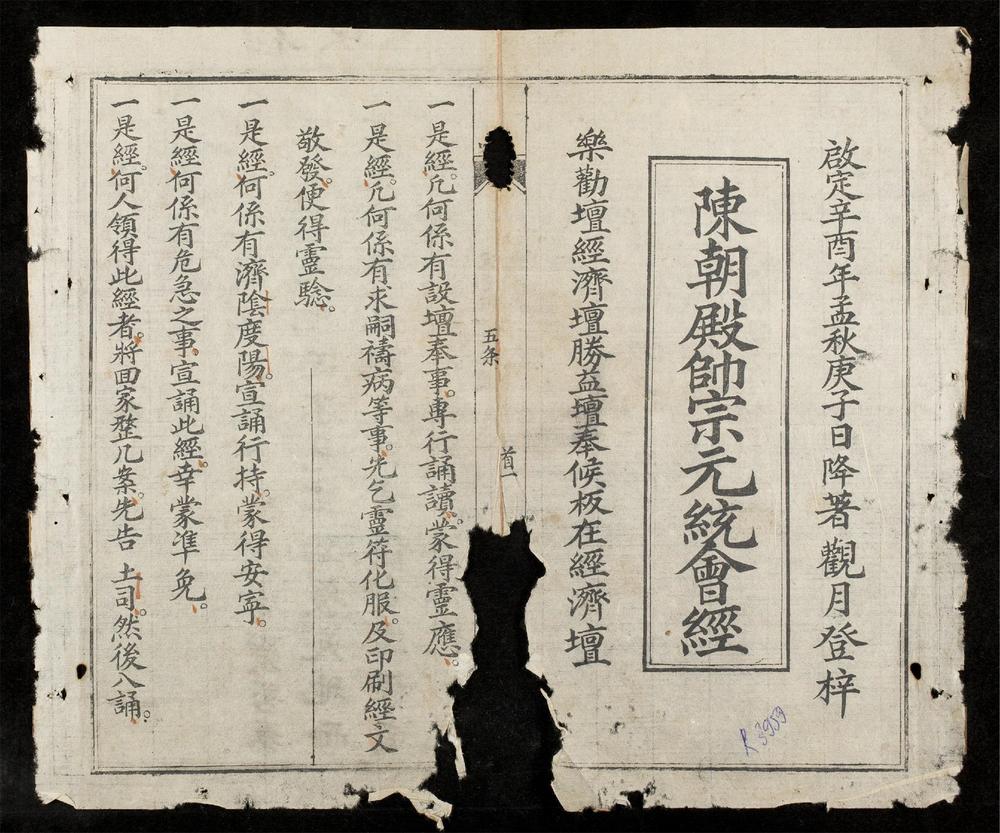 啟定辛酉年孟秋庚子日降著觀月登梓
陳朝殿帥宗元統會經
樂勸壇經濟壇勝益壇奉候板在經濟壇
首一
五条
一是經凢何係有設壇奉事。專行誦讀。蒙得靈應。
一是經。凢何係有求嗣禱病等事。先乞靈符化服。及印刷經文
敬發。便得靈驗。
一是經。何係有濟陰度陽。宣誦行持。蒙得安寧。
一是經何係有危急之事。宣誦此經。幸蒙準免。
一是經。何人領得此經者。將回家整几案。先告 土司。然後入誦。
R 3953